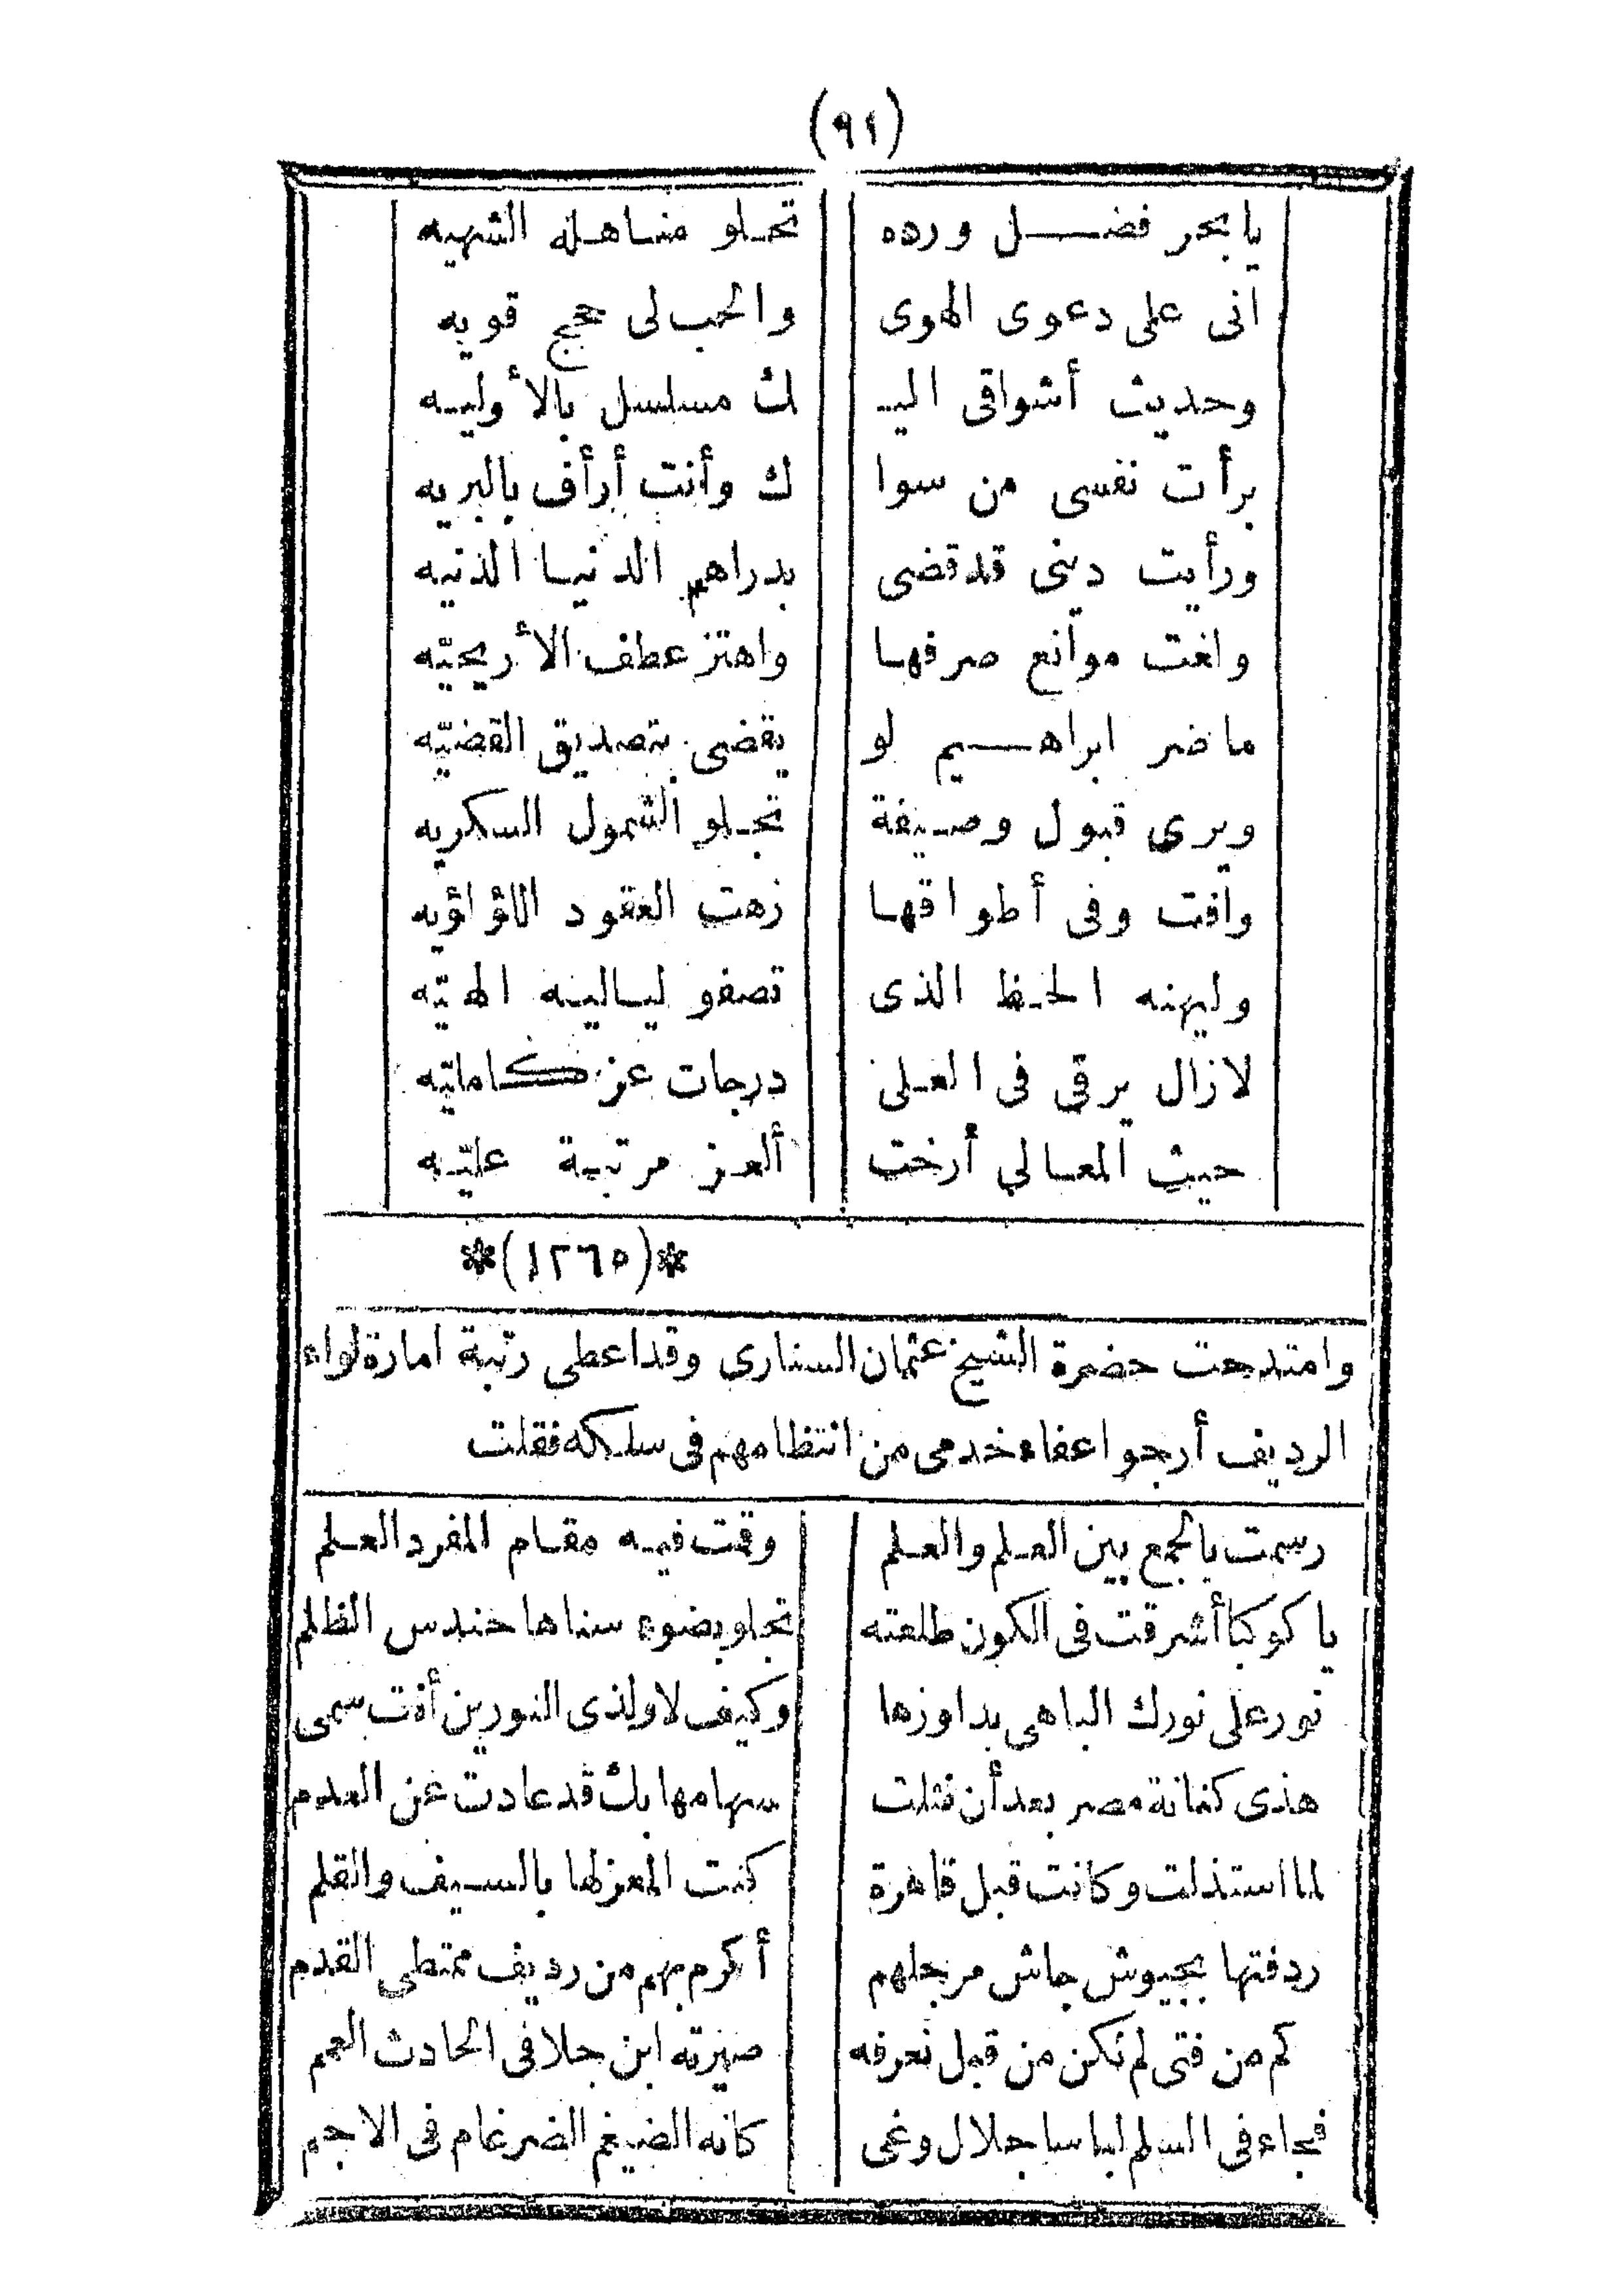 (٩١)
يا بحر فضل ورده تحلو مناهله الشهيه
انى على دعوى الهوى والحب لى حجج قويه
وحديث أشواقى اليـ ك مسلسل بالأوليه
برأت نفسى من سوا ك وأنت أرأف بالبريه
ورأيت دينى قد قضى بدراهم الدنيا الدنيه
ولغت موانع صرفها واهتز عطف الأريحيّه
ما ضر ابراهيم لو يقضى بتصديق القضيّه
ويرى قبول وصيفة تجلو الشمول السكريه
وافت وفى أطواقها زهت العقود اللؤلؤيه
وليهنه الحظ الذى تصفو لياليه الهنيّه
لازال يرقى فى العلى درجات عز كامليّه
حيث المعالي أرخت ألعز مرتبة عليّه
*(١٢٦٥)*
وامتدحت حضرة الشيخ عثمان السنارى وقد اعطى رتبة امارة لواء
الرديف أرجو اعفاء خدمى من انتظامهم فى سلكه فقلت
رسمت بالجمع بين العلم والعلم وقمت فيه مقام المفرد العلم
يا كوكبا أشرقت فى الكون طلعته تجلو بضوء سناها حندس الظلم
نور على نورك الباهى بدا وزها وكيف لا ولذى النورين أنت سمى
هذى كنانة مصر بعد أن نثلت سهامها بك قد عادت عن العدم
لما استذلت وكانت قبل قاهرة كنت المعز لها بالسيف والقلم
ردفتها بجيوش جاش مرجلهم أكرم بهم من رديف ممتطى القدم
كم من فتى لم نكن من قبل نعرفه صيرته ابن جلا فى الحادث العمم
فجاء فى السلم لباسا جلال وغى كانه الضيغم الضرغام فى الاجم